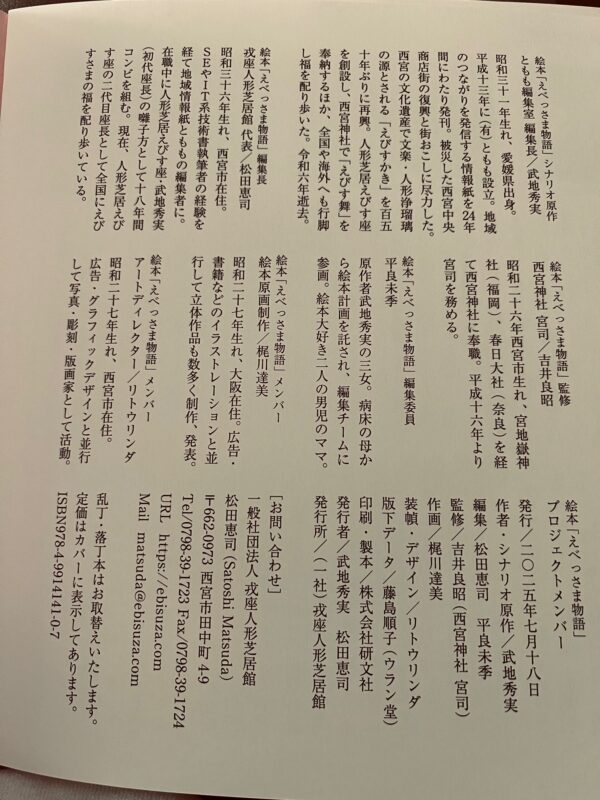 絵本「えべっさま物語」シナリオ原作
ともも編集室 編集長／武地秀実
昭和三十一年生れ、愛媛県出身。
平成十三年に（有）ともも設立。地域
のつながりを発信する情報紙を24年
間にわたり発刊。被災した西宮中央
商店街の復興と街おこしに尽力した。
西宮の文化遺産で文楽・人形浄瑠璃
の源とされる「えびすかき」を百五
十年ぶりに再興。人形芝居えびす座
を創設し、西宮神社で「えびす舞」を
奉納するほか、全国や海外へも行脚
し福を配り歩いた。令和六年逝去。
絵本「えべっさま物語」編集長
戎座人形芝居館 代表／松田恵司
昭和三十六年生れ、西宮市在住。
SEやIT系技術書執筆者の経験を
経て地域情報紙とももの編集者に。
在職中に人形芝居えびす座、武地秀実
（初代座長）の囃子方として十八年間
コンビを組む。現在、人形芝居えび
す座の二代目座長として全国にえび
すさまの福を配り歩いている。
絵本「えべっさま物語」監修
西宮神社 宮司／吉井良昭
昭和二十六年西宮市生れ、宮地嶽神
社（福岡）、春日大社（奈良）を経
て西宮神社に奉職。平成十六年より
宮司を務める。
絵本「えべっさま物語」編集委員
平良未季
原作者武地秀実の三女。病床の母か
ら絵本計画を託され、編集チームに
参画。絵本大好き二人の男児のママ。
絵本「えべっさま物語」メンバー
絵本原画制作／梶川達美
昭和二十七年生れ、大阪在住。広告・
書籍などのイラストレーションと並
行して立体作品も数多く制作、発表。
絵本「えべっさま物語」メンバー
アートディレクター／リトウリンダ
昭和二十七年生れ、西宮市在住。
広告・グラフィックデザインと並行
して写真・彫刻・版画家として活動。
絵本「えべっさま物語」
プロジェクトメンバー
発行／二〇二五年七月十八日
作者・シナリオ原作／武地秀実
編集／松田恵司 平良未季
監修／吉井良昭（西宮神社 宮司）
作画／梶川達美
装幀・デザイン／リトウリンダ
版下データ／藤島順子（ウラン堂）
印刷・製本／株式会社研文社
発行者／武地秀実 松田恵司
発行所／（一社）戎座人形芝居館
［お問い合わせ］
一般社団法人 戎座人形芝居館
松田恵司（Satoshi Matsuda）
〒662-0973 西宮市田中町 4-9
Tel/0798-39-1723 Fax/0798-39-1724
URL https://ebisuza.com
Mail matsuda@ebisuza.com
乱丁・落丁本はお取替えいたします。
定価はカバーに表示してあります。
ISBN978-4-9914141-0-7